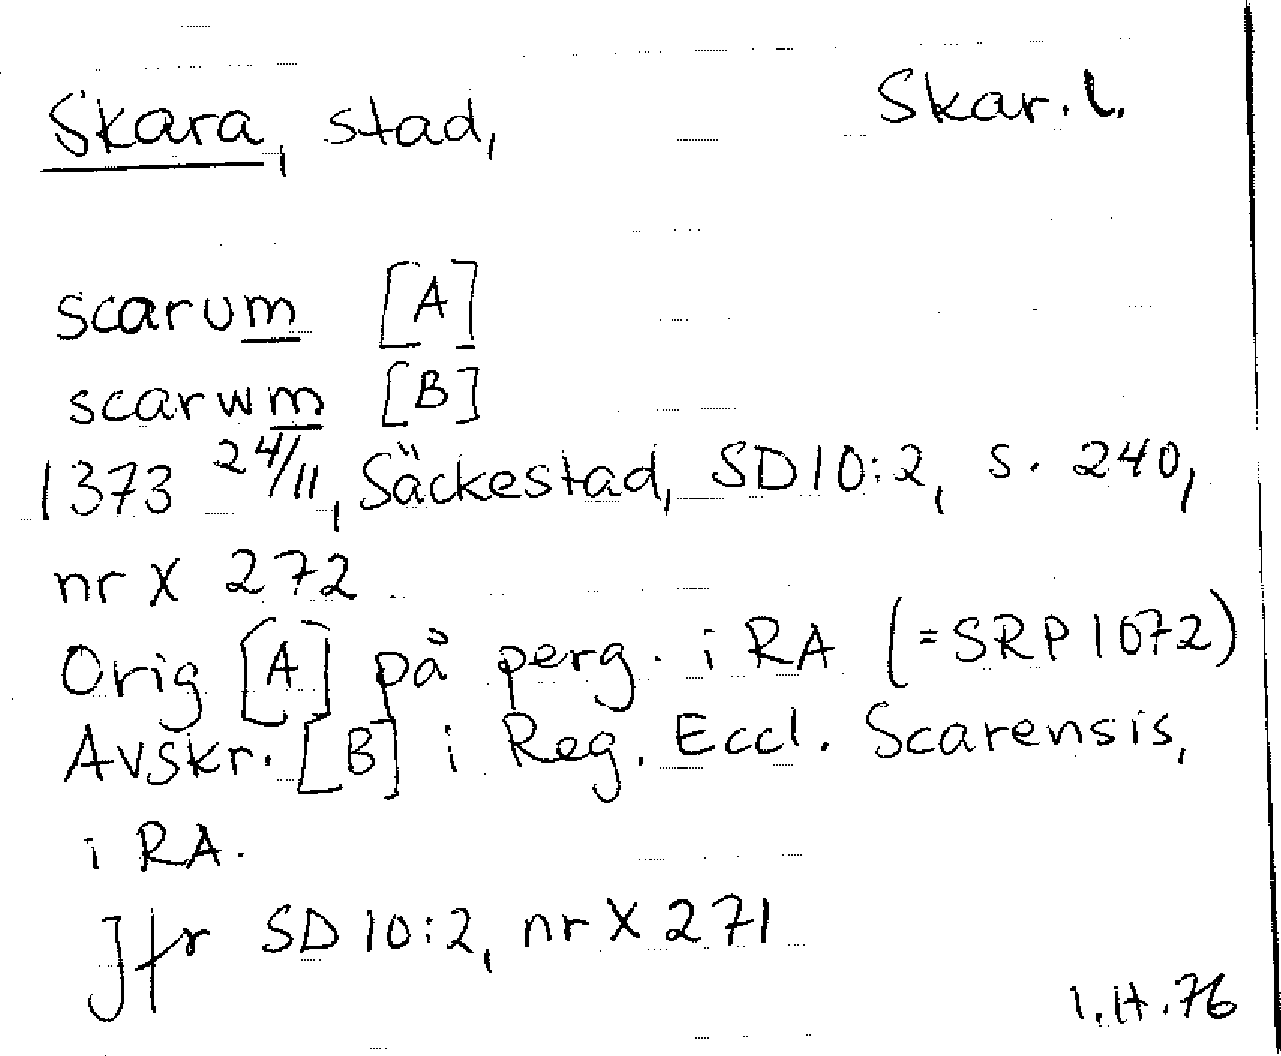 Skara, stad, Skar. l.
scarum [A]
scarwm [B]
1373 24/11, Säckestad, SD 10:2, s. 240,
nr X 272
Orig [A] på perg. i RA (=SRP 1072)
Avskr. [B] i Reg. Eccl. Scarensis,
i RA.
Jfr SD 10:2, nr X 271
I.H. 76